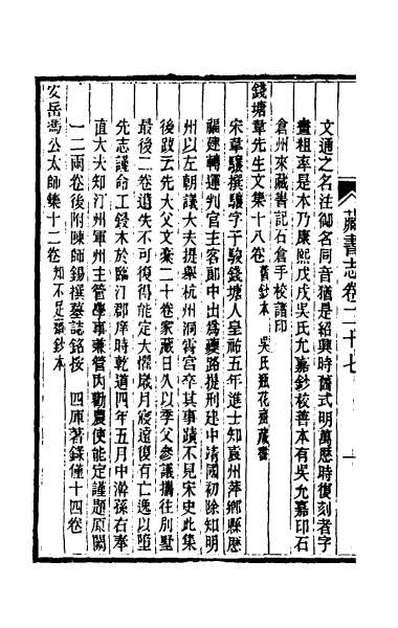 藏書志卷二十七
文通之名注御名同音猶是紹興時舊式明萬歷時復刻者字
畫粗率是本乃康熙戊戌吳氏允嘉鈔校善本有吳允嘉印石
倉州來藏書記石倉手校諸印
錢塘韋先生文集十八卷舊鈔本 吳氏瓶花齋藏書
宋韋驤撰驤字子駿錢塘人皇祐五年進士知袁州萍鄉縣歷
福建轉運判官主客郎中出為夔路提刑建中靖國初除知明
州以左朝議大夫提舉杭州洞霄宮卒其事蹟不見宋史此集
後跋云先大父文稾二十卷家藏日久以季父參議攜往別墅
最後二卷遺失不可復得能定大懼歲月寖遠復有亡逸以墮
先志謹命工鋟木於臨汀郡庠時乾道四年五月中澣孫右奉
直大夫知汀州軍州主管學事兼管內勸農使能定謹題原闕
一二兩卷後附陳師錫撰墓誌銘按 四庫著錄僅十四卷
安岳馮公太師集十二卷知不足齋鈔本